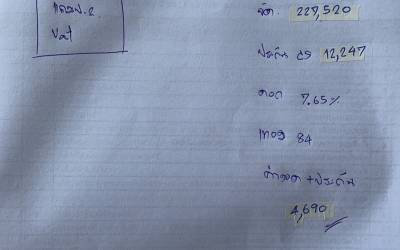 Vat
จัด. 227,520
ประกัน CS 12,247
ดอก 7.65%
งวด 84
ค่างวด + ประกัน
4,690